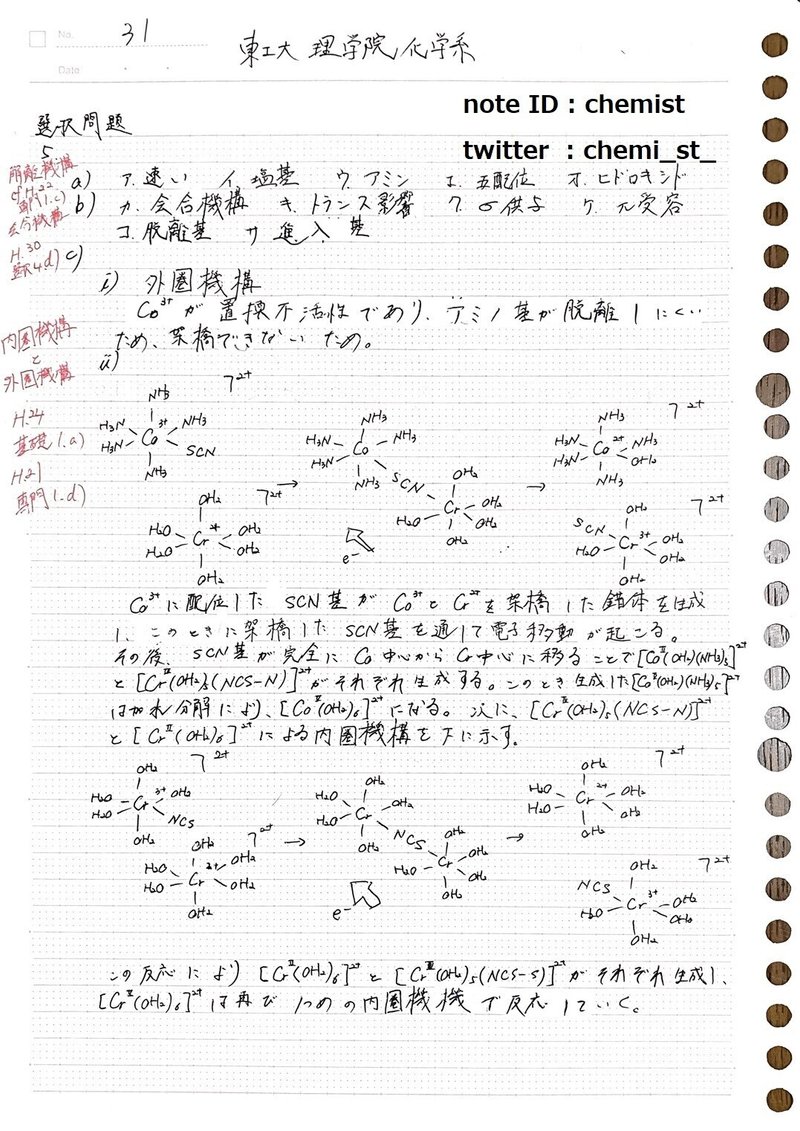 No. 31
Date
東工大 理学院/化学系
note ID：chemist
twitter ：chemi_st_
選択問題
5
解離機構
会合機構
H.30
a) ア.速い イ.塩基 ウ.アミン エ.五配位 オ.ヒドロキシド
b) カ.会合機構 キ.トランス影響 ク.σ供与 ケ.π受容
コ.脱離基 サ.進入基
c)
i) 外圏機構
Co³⁺が置換不活性であり、アミノ基が脱離しにくい
ため、架橋できないため。
ii)
内圏機構
と
外圏機構
H.24
基礎1.a)
H.21
専門1.d)
NH₃ ]²⁺
H₃N 3+ NH₃
H₃N Co SCN
NH₃
OH₂ ]²⁺
H₂O 2+ OH₂
H₂O Cr OH₂
OH₂
→
NH₃
H₃N Co NH₃
H₃N
NH₃ SCN OH₂
Cr OH₂
H₂O OH₂
OH₂
e⁻
→
NH₃ ]²⁺
H₃N 2+ NH₃
H₃N Co OH₂
NH₃
OH₂ ]²⁺
SCN 3+ OH₂
H₂O Cr OH₂
OH₂
Co³⁺に配位した SCN基が Co³⁺と Cr²⁺を架橋した錯体を生成
し、このときに架橋した SCN基を通して電子移動が起こる。
その後、SCN基が完全に Co中心から Cr中心に移ることで[Co^Ⅱ(OH₂)(NH₃)₅]²⁺
と[Cr^Ⅲ(OH₂)₅(NCS-N)]²⁺がそれぞれ生成する。このとき生成した[Co^Ⅱ(OH₂)(NH₃)₅]²⁺
は加水分解により、[Co^Ⅱ(OH₂)₆]²⁺になる。次に、[Cr^Ⅲ(OH₂)₅(NCS-N)]²⁺
と[Cr^Ⅱ(OH₂)₆]²⁺による内圏機構を下に示す。
OH₂ ]²⁺
H₂O 3+ OH₂
H₂O Cr NCS
OH₂
OH₂ ]²⁺
H₂O 2+ OH₂
H₂O Cr OH₂
OH₂
→
OH₂
H₂O Cr OH₂
H₂O
OH₂ NCS OH₂
Cr OH₂
H₂O OH₂
OH₂
e⁻
→
OH₂ ]²⁺
H₂O 2+ OH₂
H₂O Cr OH₂
OH₂
OH₂ ]²⁺
NCS 3+ OH₂
H₂O Cr OH₂
OH₂
この反応により[Cr^Ⅱ(OH₂)₆]²⁺と[Cr^Ⅲ(OH₂)₅(NCS-S)]²⁺がそれぞれ生成し、
[Cr^Ⅱ(OH₂)₆]²⁺は再び1つめの内圏機機で反応していく。